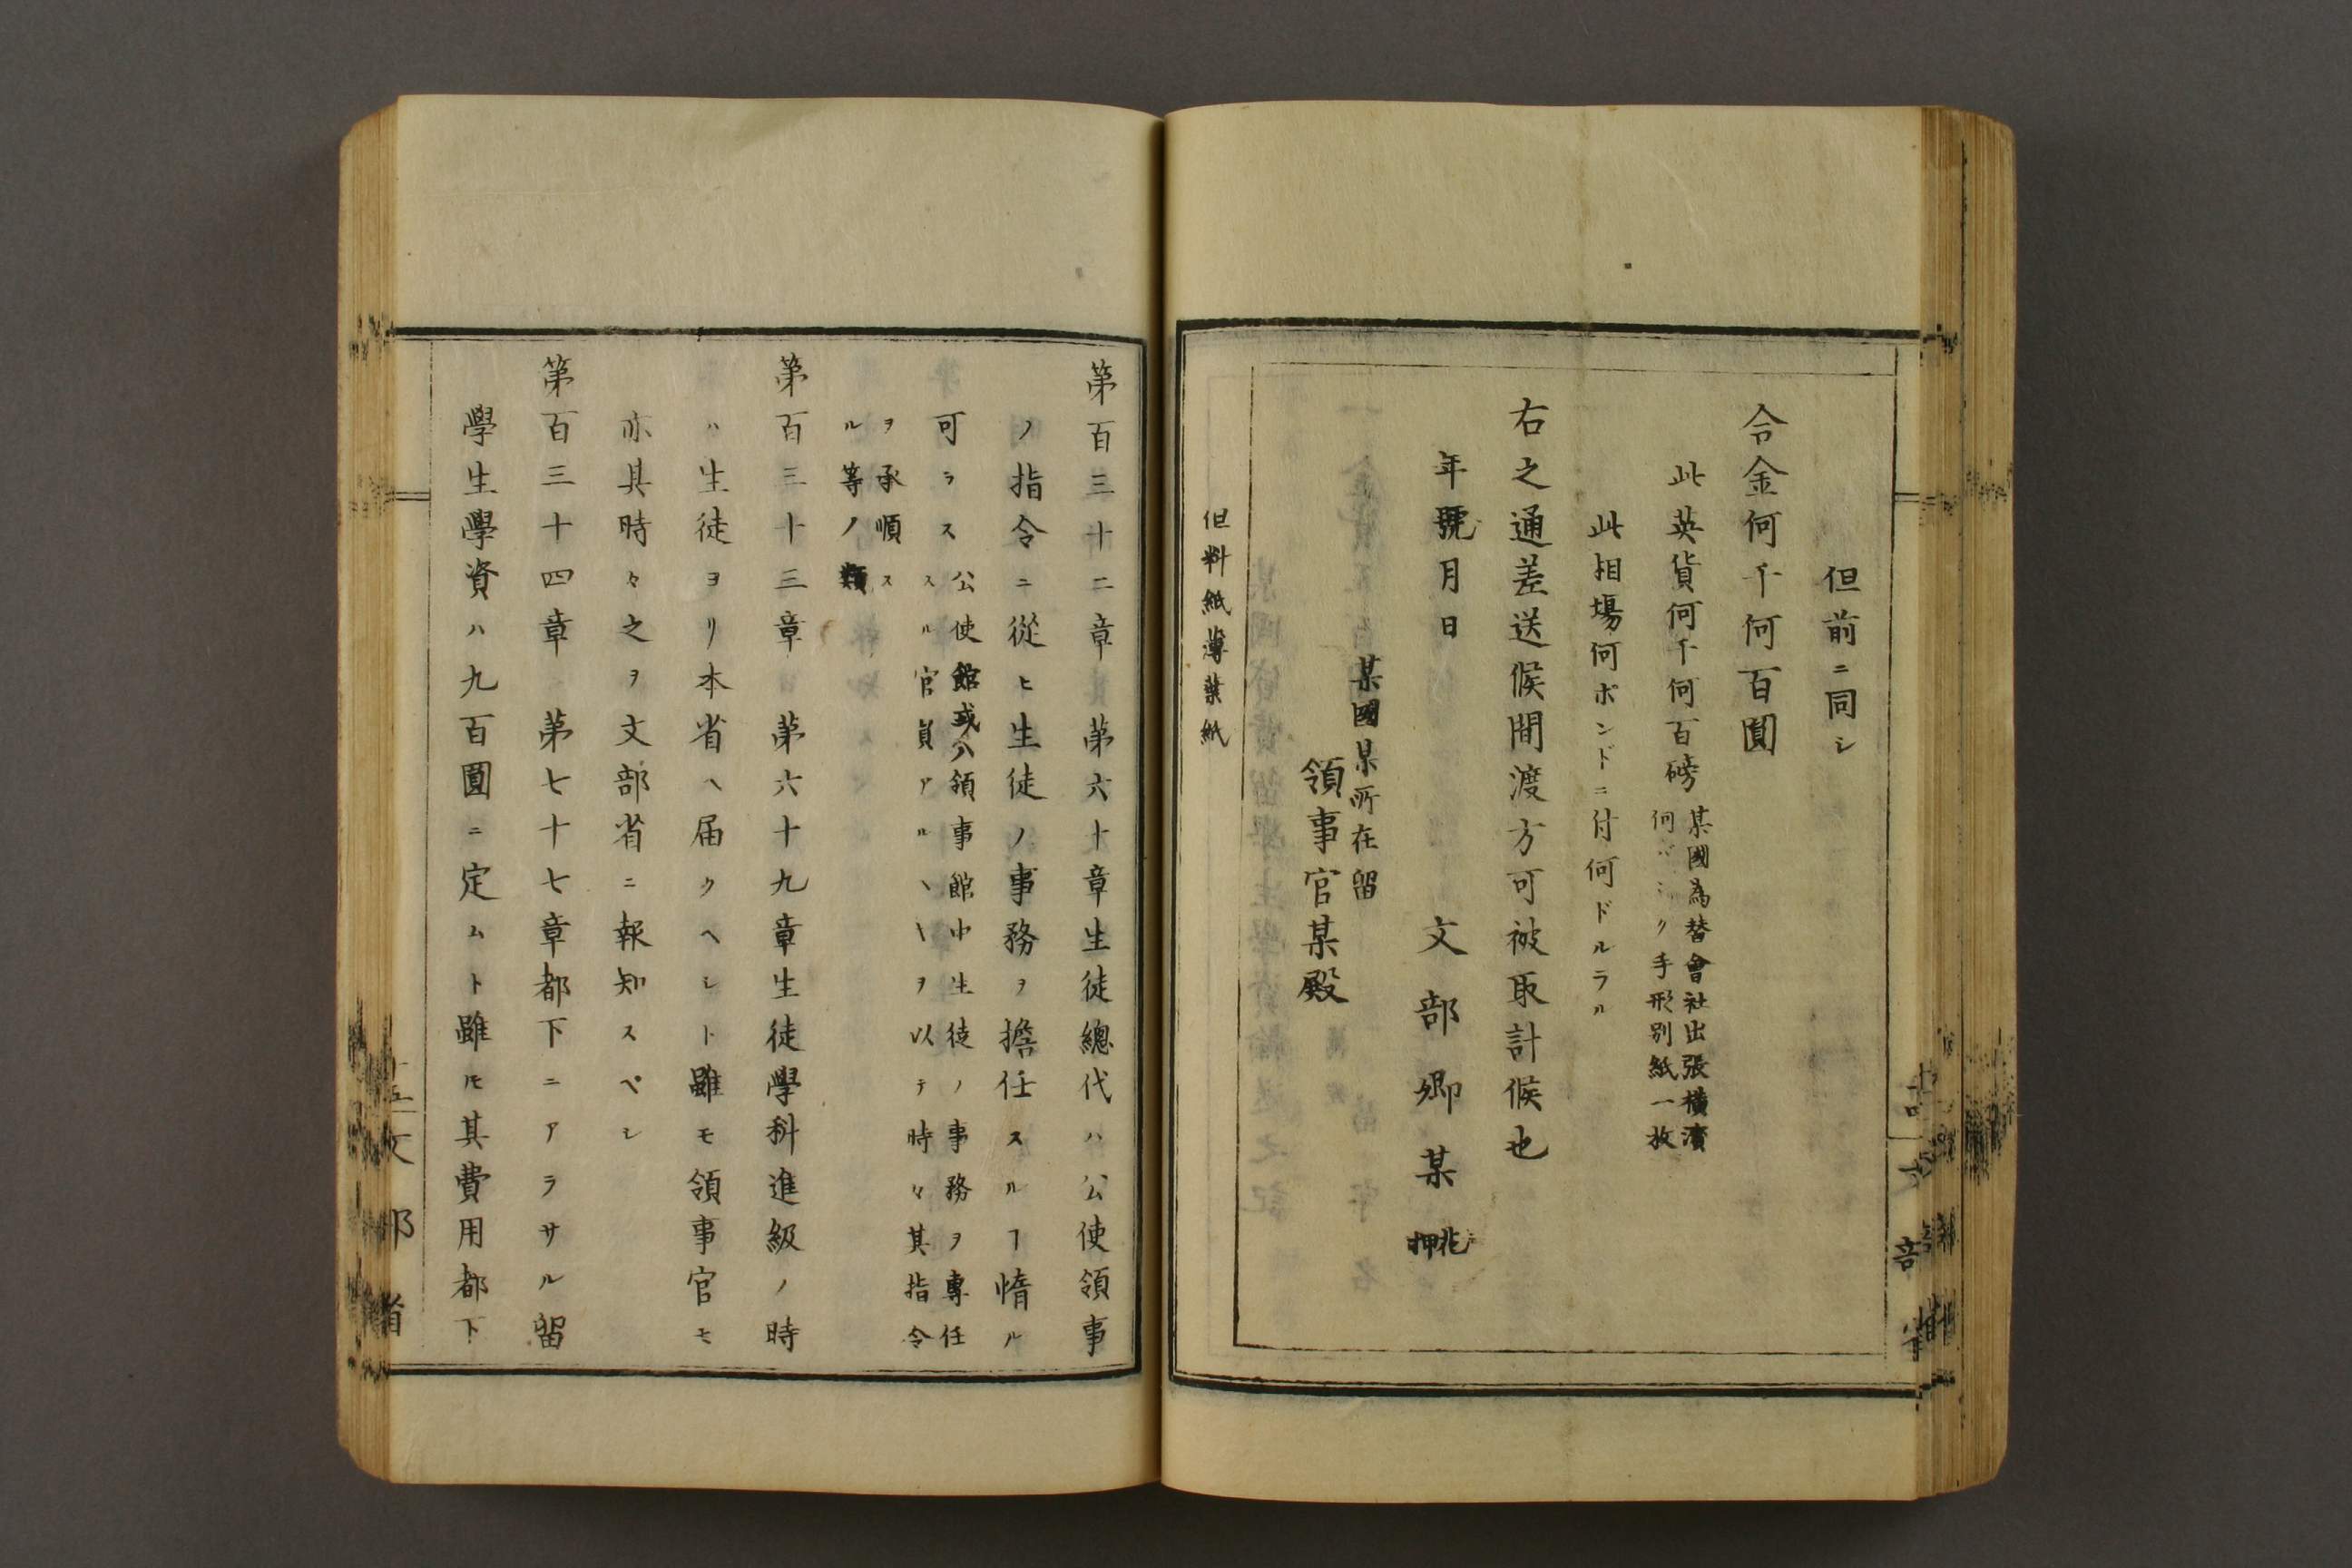 但前ニ同シ
合金何千何百圓
此英貨何千何百磅
某國為替會社出張横濱
手形別紙一枚
此相場何ポンドニ付何ドルラル
右之通差送候間渡方可被取計候也
年號月日
文部卿某 花押
某國某所在留
領事官某殿
但料紙薄葉紙
第百三十二章 第六十章生徒總代ハ公使領事
ノ指令ニ從ヒ生徒ノ事務ヲ擔任スルヿ惰ル
可ラス
公使館或ハ領事館中生徒ノ事務ヲ專任
スル官員アルトキハ以テ時々其指令
ヲ承順ス
ル等ノ類
第百三十三章 第六十九章生徒學科進級ノ時
ハ生徒ヨリ本省ヘ届クヘシト雖モ領事官モ
亦其時々之ヲ文部省ニ報知スベシ
第百三十四章 第七十七章都下ニアラサル留
學生學資ハ九百圓ニ定ムト雖モ其費用都下
十五
文部省
十四
文部省